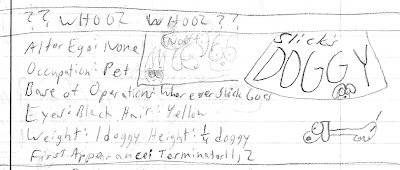 ?? WHOOZ WHOOZ ??
Alter Ego: None
Occupation: Pet
Base of Operations: Wherever Slick Goes
Eyes: Black Hair: Yellow
Weight: 1 doggy Height: ¼ doggy
First Appearance: Terminator 11,2
Slick's
DOGGY